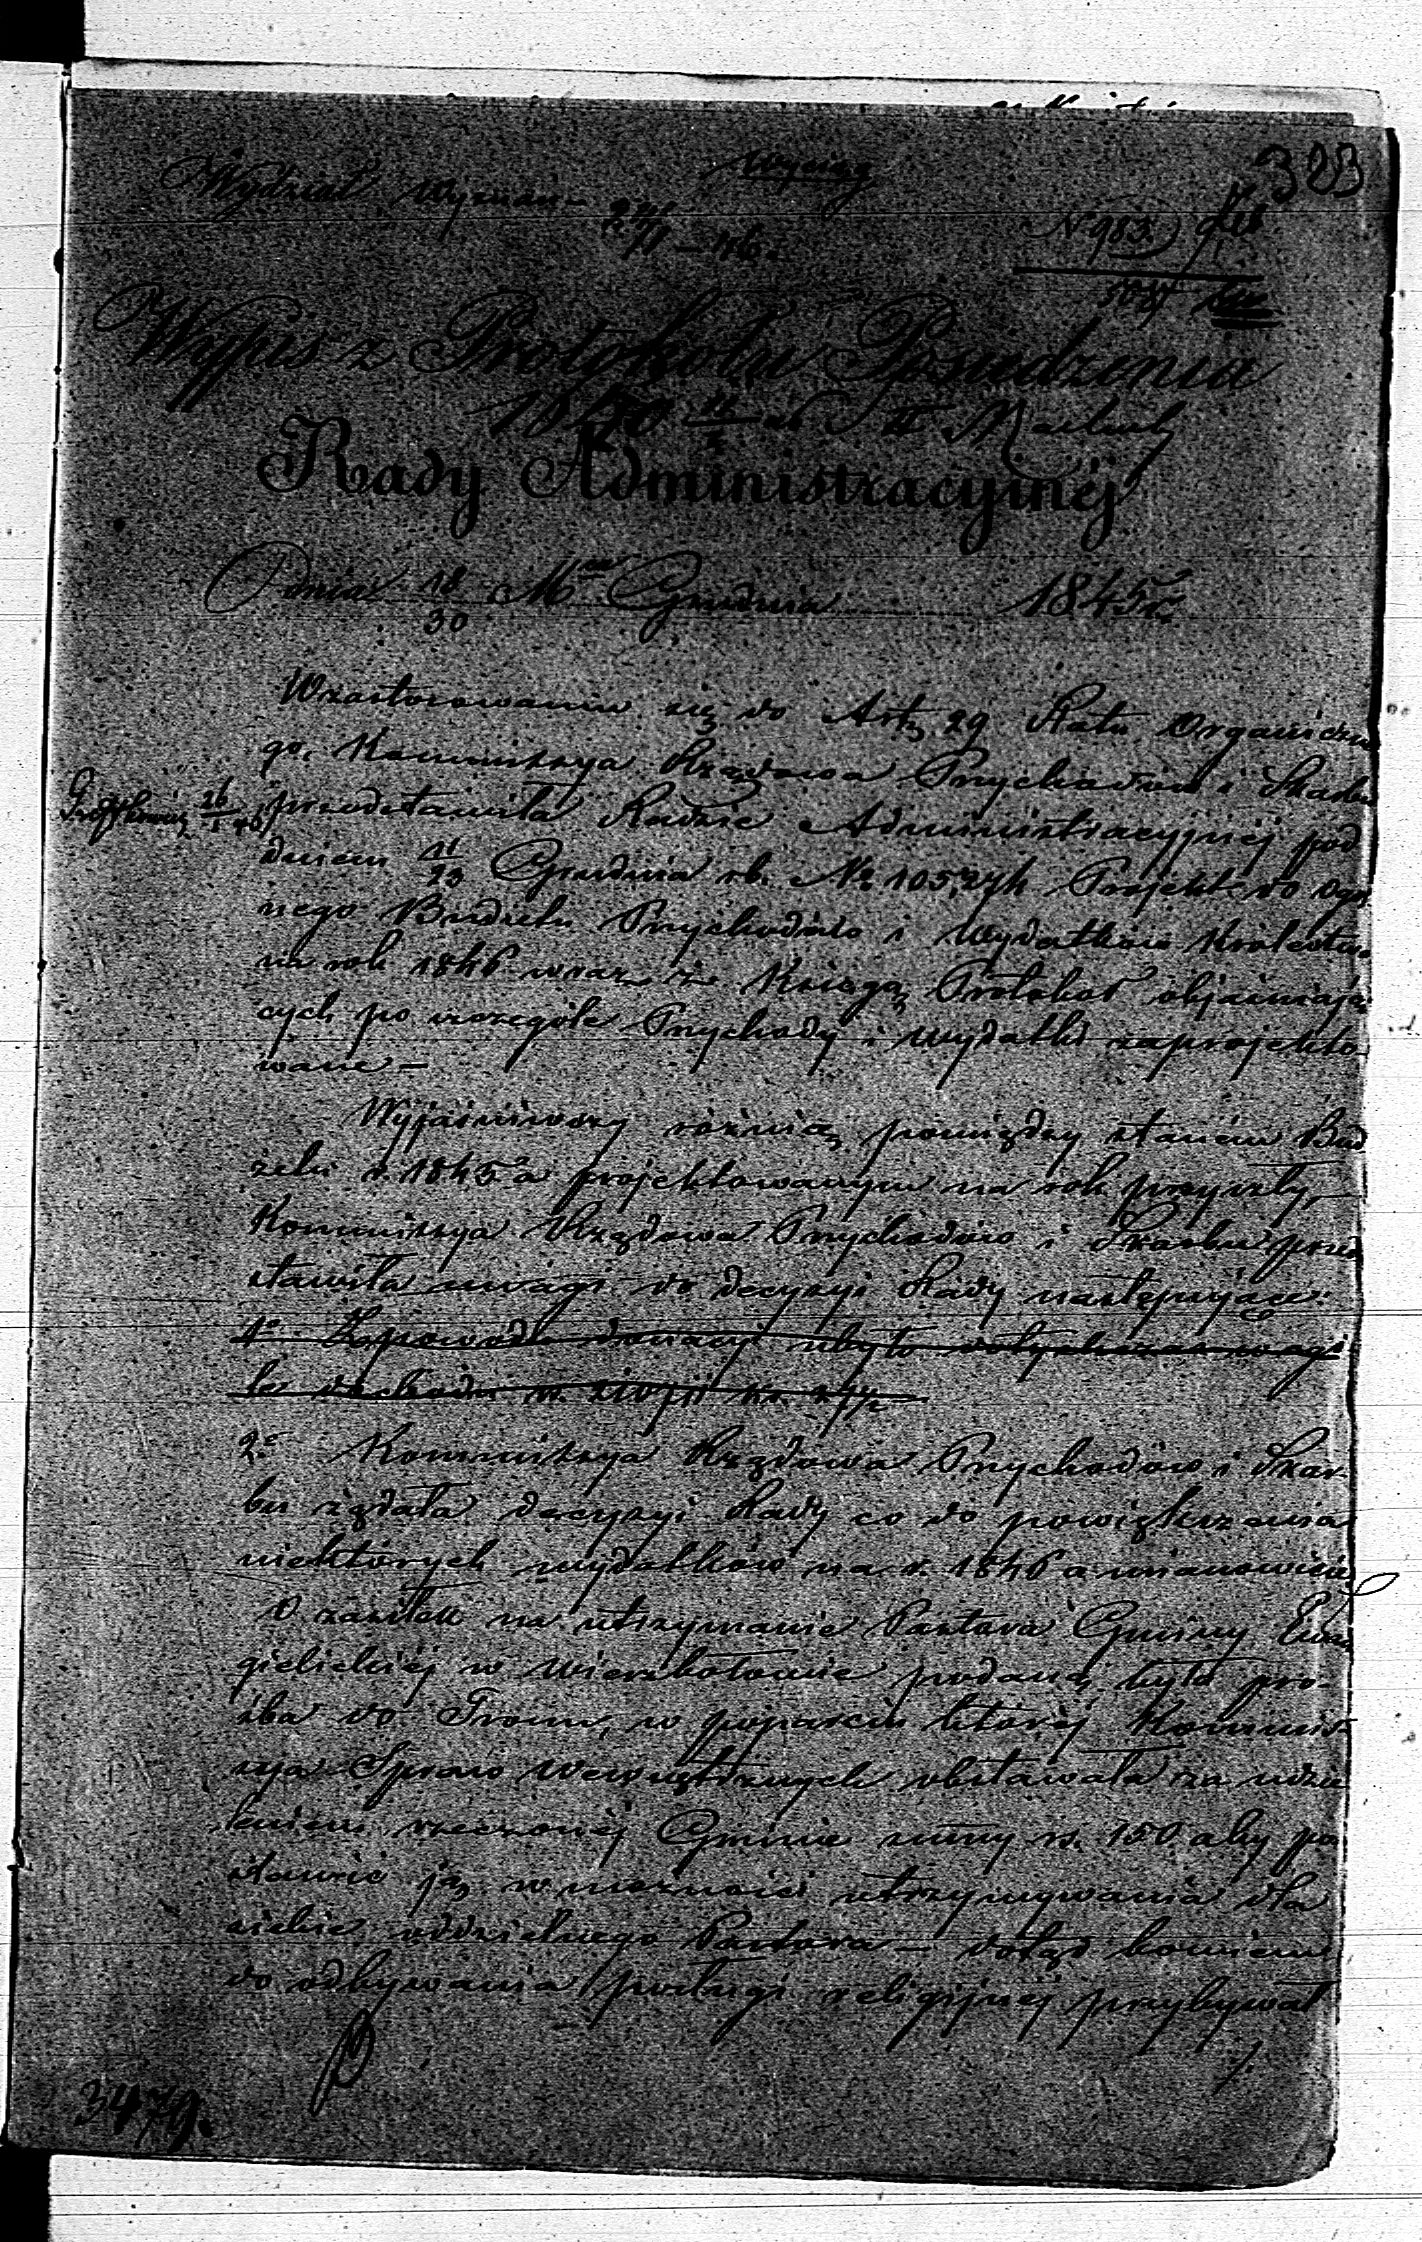 323
Wydział Wyznań
N 983
Wypis z Protokołu Posiedzenia
Rady Administracyjnéj
Dnia 18/30 Mca Grudnia 1845 r.
W zastosowaniu się do Art. 29 Statu Organiczne
go, Kommissya Rządowa Przychodów i Skarbu
przedstawiła Radzie Administracyjnéj pod
dniem 11/23 Grudnia rb. No 105,274 Projekt do ogól
nego Budżetu Przychodów i Wydatków Królestwa
na rok 1846 wraz z Księgą Protokół objaśniają
cych po szczególe Przychody i wydatki zaprojekto
wane –
Wyjaśniwszy różnicę pomiędzy stanem Bud
żetu r. 1845 a projektowanym na rok przyszły,
Kommissya Rządowa Przychodów i Skarbu przed
stawiła uwagi do decyzyi Rady następujące:
1e Z powodu donacyi ubyło
dochodu
2e Kommissya Rządowa Przychodów i Skar-
bu żądała decyzyi Rady co do powiększenia
niektórych wydatków na r. 1846 a mianowicie
O zasiłek na utrzymanie Pastora Gminy Ewan
gielickiéj w Wierzbołowie podaną była pro-
źba do Tronu, w poparciu któréj Kommis-
sya Spraw Wewnętrznych obstawała za udzie
leniem rzeczonéj Gminie summy rs. 150 aby po
stawić ją w możności utrzymywania dla
siebie oddzielnego Pastora – dotąd bowiem
do odbywania posługi religijnéj przybywał
3479.